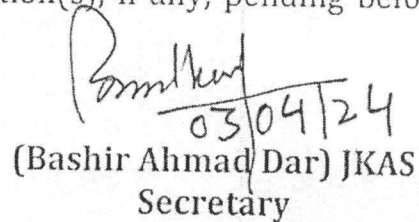 if any, pending
03/04/24
(Bashir Ahmad Dar) JKAS
Secretary